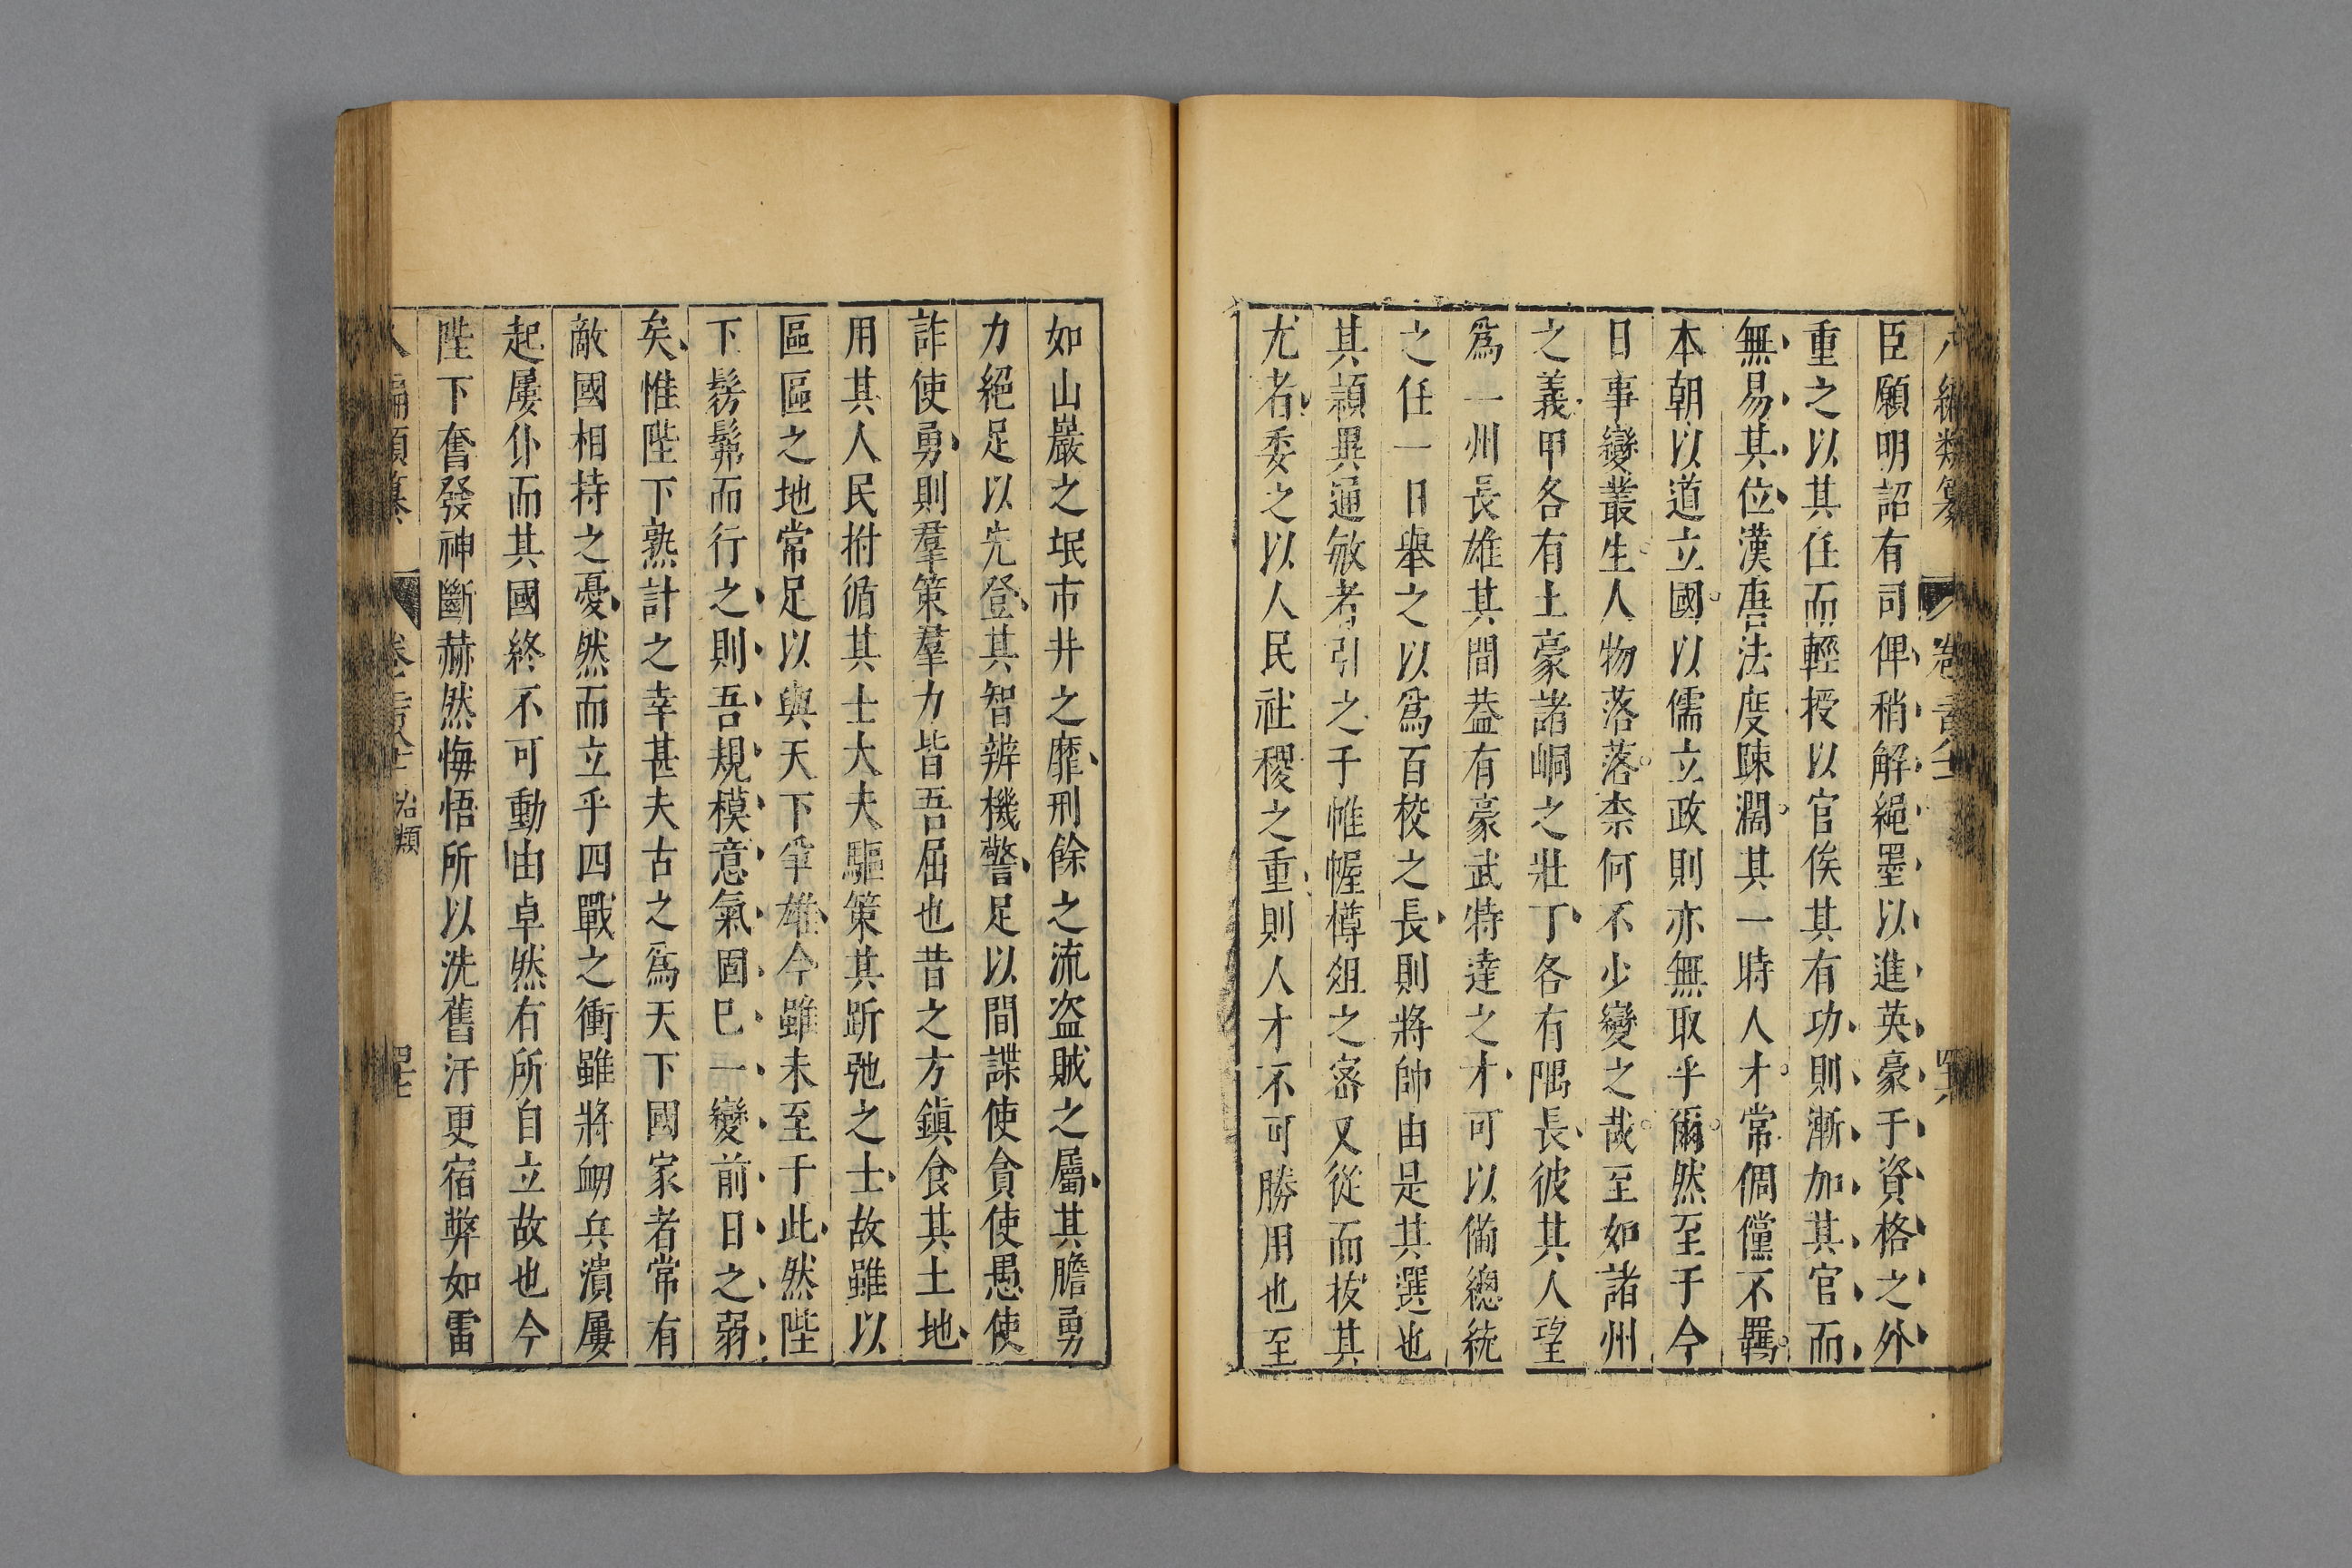 編類纂 卷
臣願明詔有司俾稍解繩墨以進英豪于資格之外
重之以其任而輕授以官俟其有功則漸加其官而
無易其位漢唐法度踈濶其一時人才常倜儻不羈
本朝以道立國以儒立政則亦無取乎爾然至于今
日事變叢生人物落落柰何不少變之哉至如諸州
之義甲各有土豪諸峒之壯丁各有隅長彼其人望
爲一州長雄其間葢有豪武特達之才可以備總統
之任一日舉之以爲百校之長則將帥由是其選也
其頴異通敏者引之于帷幄樽俎之宻又從而拔其
尤者委之以人民社稷之重則人才不可勝用也至
如山巖之氓市井之靡刑餘之流盜賊之屬其膽勇
力絕足以先登其智辨機警足以間諜使貪使愚使
詐使勇則羣策羣力皆吾屈也昔之方鎮食其土地
用其人民拊循其士大夫驅策其跅弛之士故雖以
區區之地常足以與天下爭雄今雖未至于此然陛
下髣髴而行之則吾規模意氣固已一變前日之弱
矣惟陛下熟計之幸甚夫古之爲天下國家者常有
敵國相持之憂然而立乎四戰之衝雖將衂兵潰屢
起屢仆而其國終不可動由卓然有所自立故也今
陛下奮發神斷赫然悔悟所以洗舊汙更宿弊如雷
類纂 卷 治類